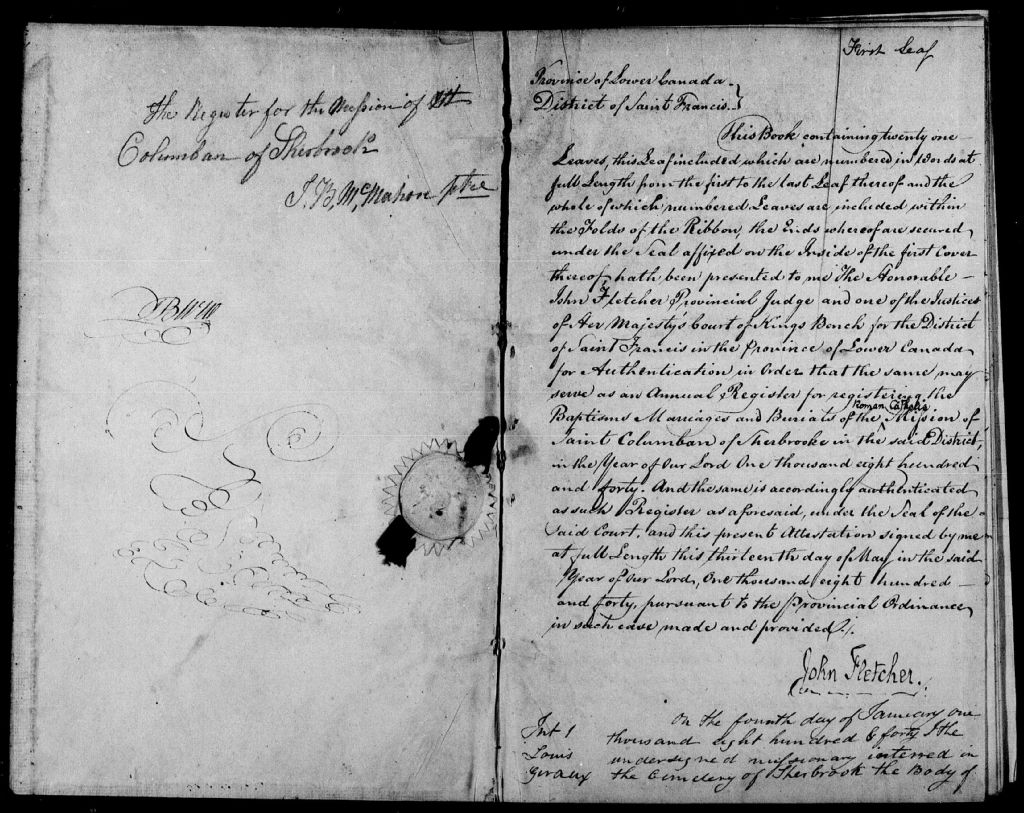 The Register for the Mission of St
Columban of Sherbrooke
J. B. McMahon ptre
JBMcM
First Leaf
Province of Lower Canada
District of Saint Francis
This Book containing twenty one
Leaves, this Leaf included which are numbered in Words at
full Length from the first to the last Leaf thereof and the
whole of which numbered Leaves are included within
the Folds of the Ribbon, the Ends whereof are secured
under the Seal affixed on the Inside of the first Cover
thereof, hath been presented to me The Honorable
John Fletcher Provincial Judge and one of the Justices
of Her Majesty's Court of Kings Bench for the District
of Saint Francis in the Province of Lower Canada
for Authentication in Order that the same may
serve as an Annual Register for registering the
Baptisms Marriages and Burials of the Roman Catholic Mission of
Saint Columban of Sherbrooke in the said District,
in the Year of Our Lord One thousand eight hundred
and forty. And the same is accordingly authenticated
as such Register as aforesaid, under the Seal of the
said Court, and this present Attestation signed by me
at full Length this thirteenth day of May in the said
Year of Our Lord, One thousand eight hundred
and forty, pursuant to the Provincial Ordinance
in such case made and provided.
John Fletcher.
On the fourth day of January one
Int 1
thousand eight hundred & forty I the
Louis
undersigned missionary interred in
Giroux
the Cemetery of Sherbrook the Body of